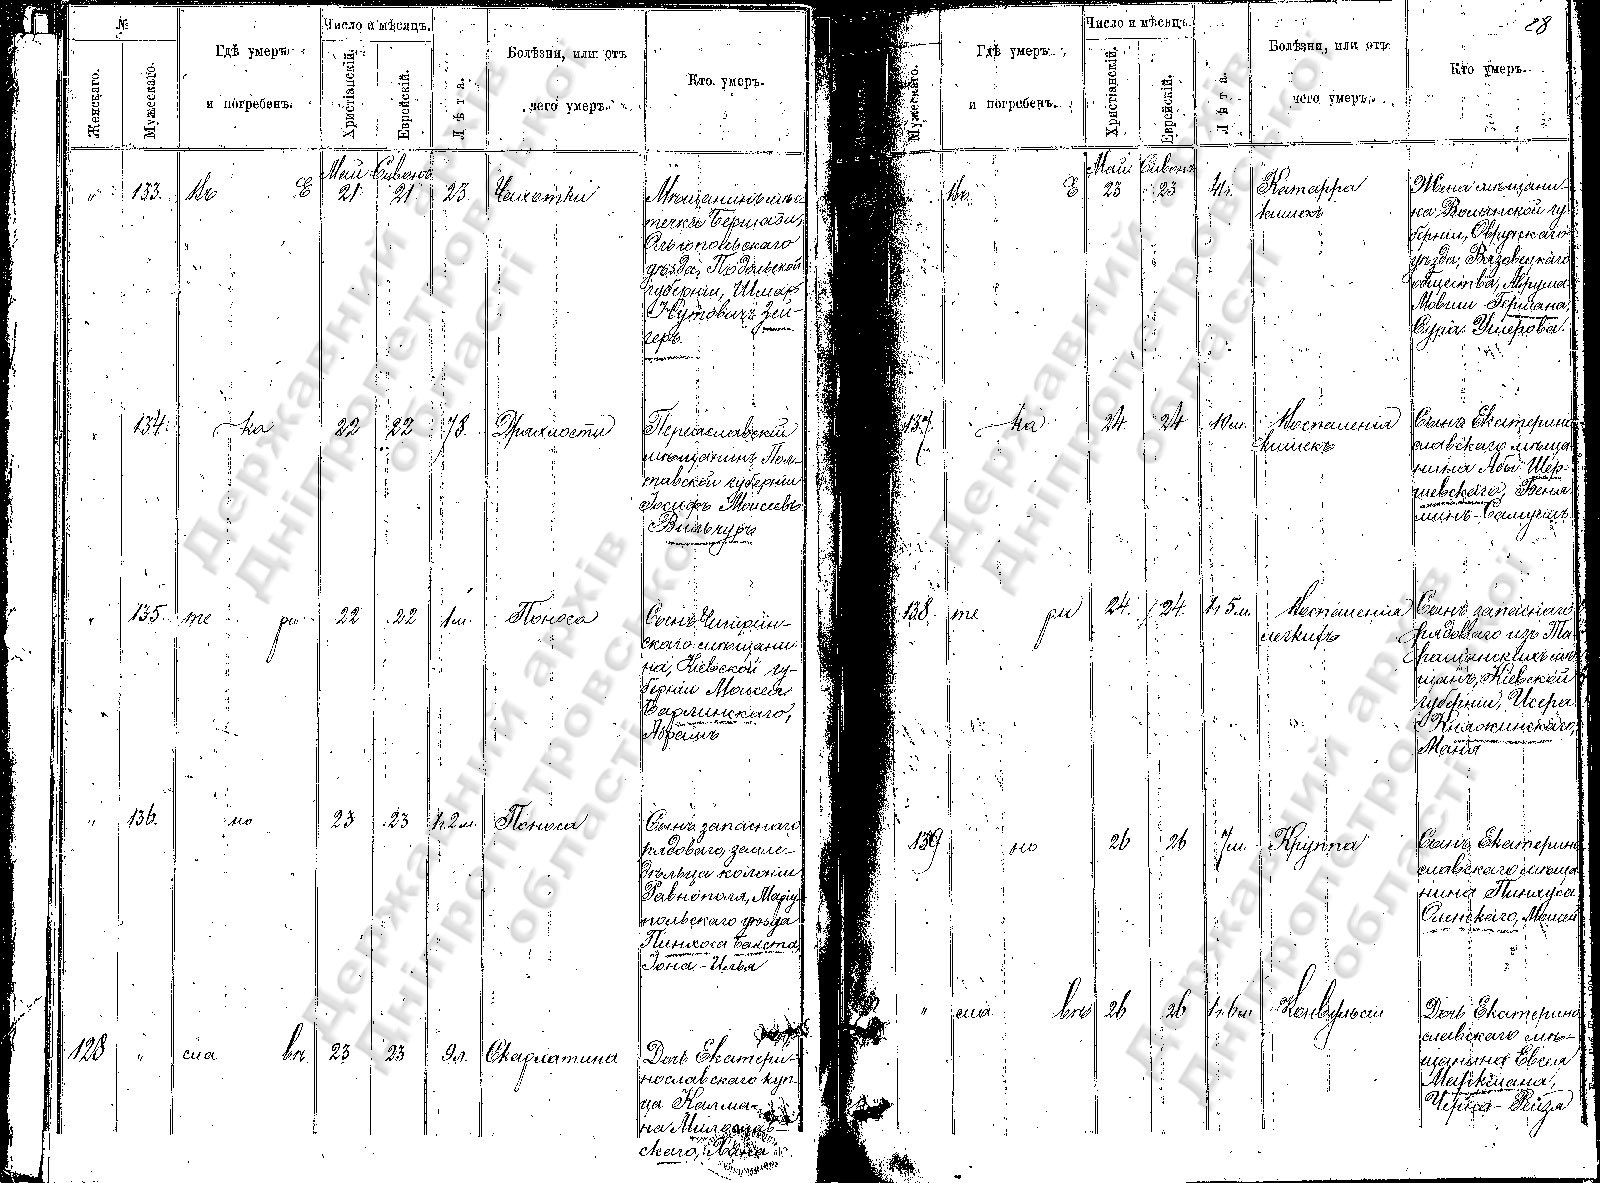 №
Число и мѣсяцъ.
Гдѣ умеръ
и погребенъ.
Женскаго.
Мужескаго.
Христіанскій.
Еврейскій.
Лѣта.
Болѣзни, или отъ
чего умеръ.
Кто умеръ.
Май Сивонъ
" 133. Въ Е 21 21 23 Чахотки
Мѣщанинъ мѣс
течка Бершади,
Ольгопольскаго
уѣзда, Подольской
губерніи, Шмар
Нутовичъ Зей-
геръ
" 134. ка 22 22 78. Дряхлости
Переяславскій
мѣщанинъ Пол-
тавской губерніи
Іосифъ Моисеевъ
Вильчуръ
" 135. те ри 22 22 1 м. Поноса
Сынъ Чигирин-
скаго мѣщани
на, Кіевской гу-
берніи Моисея
Барлинскаго,
Абрамъ
" 136. но 23 23 1г. 2 м. Поноса
Сынъ запаснаго
рядоваго, земле-
дѣльца колоніи
Равнополя, Маріу
польскаго уѣзда
Пинхоса Бакста,
Іона-Илья
128 " сла вѣ 23 23 9 л. Скарлатина
Дочь Екатери-
нославскаго куп-
ца Калма-
на Милослав-
скаго, Хана
28
Число и мѣсяцъ.
Мужескаго.
Гдѣ умеръ
и погребенъ.
Христіанскій.
Еврейскій.
Лѣта.
Болѣзни, или отъ
чего умеръ.
Кто умеръ.
Май Сивонъ
Въ Е 23 23 41. Катарра
кишекъ
Жена мѣщани-
на Волынской гу
берніи, Овручскаго
уѣзда,
общества,
Мовши Германа,
Сура Ушерова
137 ка 24 24 10 м. Воспаленія
кишекъ
Сынъ Екатерино
славскаго мѣща
нина Абы Шер-
шевскаго, Веніа
минъ-Самуилъ
138. те ри 24. 24. 1г. 5 м. Воспаленія
легкихъ
Сынъ запаснаго
рядоваго изъ Та-
ращанскихъ мѣ
щанъ, Кіевской
губерніи, Исера
Княжинскаго,
Маня
139 но 26 26 7 м. Круппа
Сынъ Екатерино
славскаго мѣща
нина Пинхуса
Оленскаго, Моисей
" сла вѣ 26 26 1г. 6 м Конвульсіи
Дочь Екатерино
славскаго мѣ-
щанина Евсея
Марксмана,
Черна-Рейза
Державний архів
Дніпропетровської
області